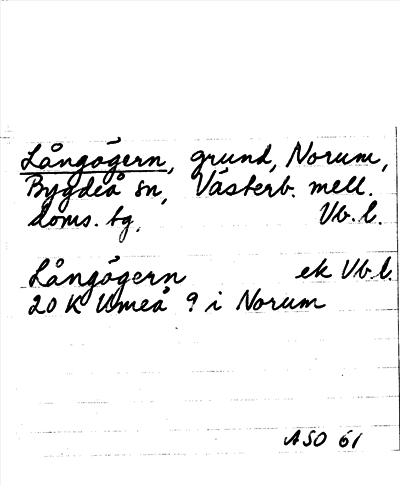 Långögern, grund, Norum,
Bygdeå sn, Västerb. mell.
doms. tg. Vb. l.
Långögern ek Vb. l.
20 K Umeå 9 i Norum
ASO 61